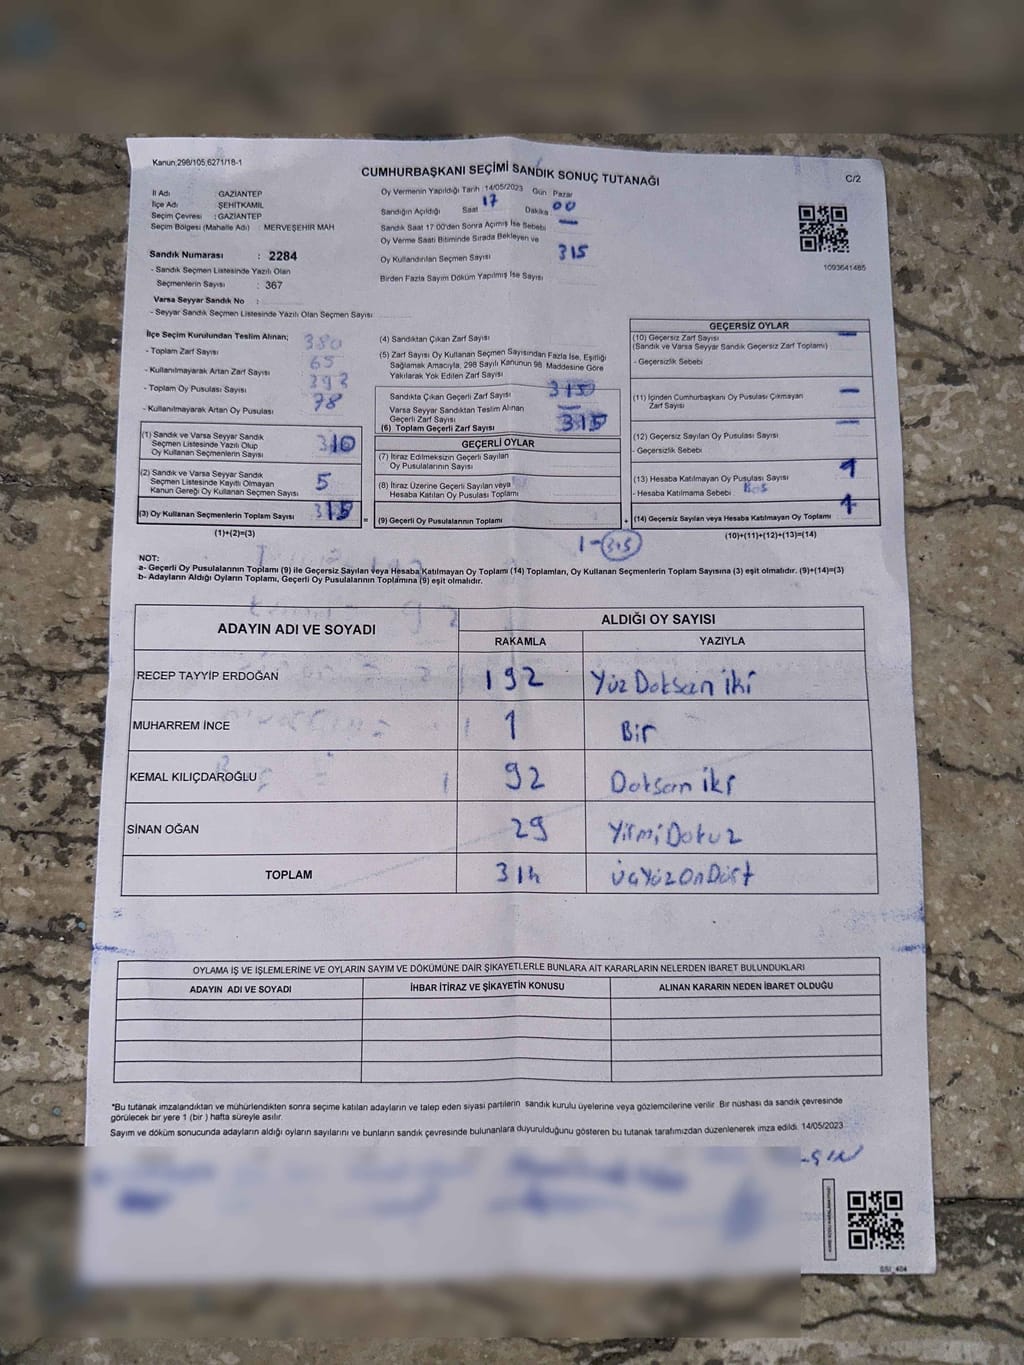 Kanun;298/105,6271/18-1
CUMHURBAŞKANI SEÇİMİ SANDIK SONUÇ TUTANAĞI
C/2
İl Adı : GAZİANTEP
İlçe Adı : ŞEHİTKAMİL
Seçim Çevresi : GAZİANTEP
Seçim Bölgesi (Mahalle Adı) : MERVEŞEHİR MAH
Sandık Numarası : 2284
- Sandık Seçmen Listesinde Yazılı Olan
Seçmenlerin Sayısı : 367
Varsa Seyyar Sandık No :
- Seyyar Sandık Seçmen Listesinde Yazılı Olan Seçmen Sayısı:
Oy Vermenin Yapıldığı Tarih :14/05/2023 Gün Pazar
Sandığın Açıldığı Saat 17 Dakika 00
Sandık Saat 17:00'den Sonra Açımış İse Sebebi —
Oy Verme Saati Bitiminde Sırada Bekleyen ve
Oy Kullandırılan Seçmen Sayısı 315
Birden Fazla Sayım Döküm Yapılmış İse Sayısı
1093641485
İlçe Seçim Kurulundan Teslim Alınan;
- Toplam Zarf Sayısı 380
- Kullanılmayarak Artan Zarf Sayısı 65
- Toplam Oy Pusulası Sayısı 393
- Kullanılmayarak Artan Oy Pusulası 78
(1) Sandık ve Varsa Seyyar Sandık
Seçmen Listesinde Yazılı Olup
Oy Kullanan Seçmenlerin Sayısı 310
(2) Sandık ve Varsa Seyyar Sandık
Seçmen Listesinde Kayıtlı Olmayan
Kanun Gereği Oy Kullanan Seçmen Sayısı 5
(3) Oy Kullanan Seçmenlerin Toplam Sayısı 315
(1)+(2)=(3)
(4) Sandıktan Çıkan Zarf Sayısı
(5) Zarf Sayısı Oy Kullanan Seçmen Sayısından Fazla İse, Eşitliği
Sağlamak Amacıyla, 298 Sayılı Kanunun 98. Maddesine Göre
Yakılarak Yok Edilen Zarf Sayısı
Sandıkta Çıkan Geçerli Zarf Sayısı 315
Varsa Seyyar Sandıktan Teslim Alınan
Geçerli Zarf Sayısı —
(6) Toplam Geçerli Zarf Sayısı 315
GEÇERLİ OYLAR
(7) İtiraz Edilmeksizin Geçerli Sayılan
Oy Pusulalarının Sayısı
(8) İtiraz Üzerine Geçerli Sayılan veya
Hesaba Katılan Oy Pusulası Toplamı
= (9) Geçerli Oy Pusulalarının Toplamı +
GEÇERSİZ OYLAR
(10) Geçersiz Zarf Sayısı —
(Sandık ve Varsa Seyyar Sandık Geçersiz Zarf Toplamı)
- Geçersizlik Sebebi
(11) İçinden Cumhurbaşkanı Oy Pusulası Çıkmayan
Zarf Sayısı —
(12) Geçersiz Sayılan Oy Pusulası Sayısı —
- Geçersizlik Sebebi
(13) Hesaba Katılmayan Oy Pusulası Sayısı 1
- Hesaba Katılmama Sebebi Boş
(14) Geçersiz Sayılan veya Hesaba Katılmayan Oy Toplamı 1
(10)+(11)+(12)+(13)=(14)
NOT:
a- Geçerli Oy Pusulalarının Toplamı (9) ile Geçersiz Sayılan veya Hesaba Katılmayan Oy Toplamı (14) Toplamları, Oy Kullanan Seçmenlerin Toplam Sayısına (3) eşit olmalıdır. (9)+(14)=(3)
b- Adayların Aldığı Oyların Toplamı, Geçerli Oy Pusulalarının Toplamına (9) eşit olmalıdır.
ADAYIN ADI VE SOYADI ALDIĞI OY SAYISI
RAKAMLA YAZIYLA
RECEP TAYYİP ERDOĞAN 192 Yüz Doksan iki
MUHARREM İNCE 1 Bir
KEMAL KILIÇDAROĞLU 92 Doksan iki
SİNAN OĞAN 29 Yirmi Dokuz
TOPLAM 314 üçYüz On Dört
OYLAMA İŞ VE İŞLEMLERİNE VE OYLARIN SAYIM VE DÖKÜMÜNE DAİR ŞİKAYETLERLE BUNLARA AİT KARARLARIN NELERDEN İBARET BULUNDUKLARI
ADAYIN ADI VE SOYADI İHBAR İTİRAZ VE ŞİKAYETİN KONUSU ALINAN KARARIN NEDEN İBARET OLDUĞU
*Bu tutanak imzalandıktan ve mühürlendikten sonra seçime katılan adayların ve talep eden siyasi partilerin sandık kurulu üyelerine veya gözlemcilerine verilir. Bir nüshası da sandık çevresinde
görülecek bir yere 1 (bir ) hafta süreyle asılır.
Sayım ve döküm sonucunda adayların aldığı oyların sayılarını ve bunların sandık çevresinde bulunanlara duyurulduğunu gösteren bu tutanak tarafımızdan düzenlenerek imza edildi. 14/05/2023